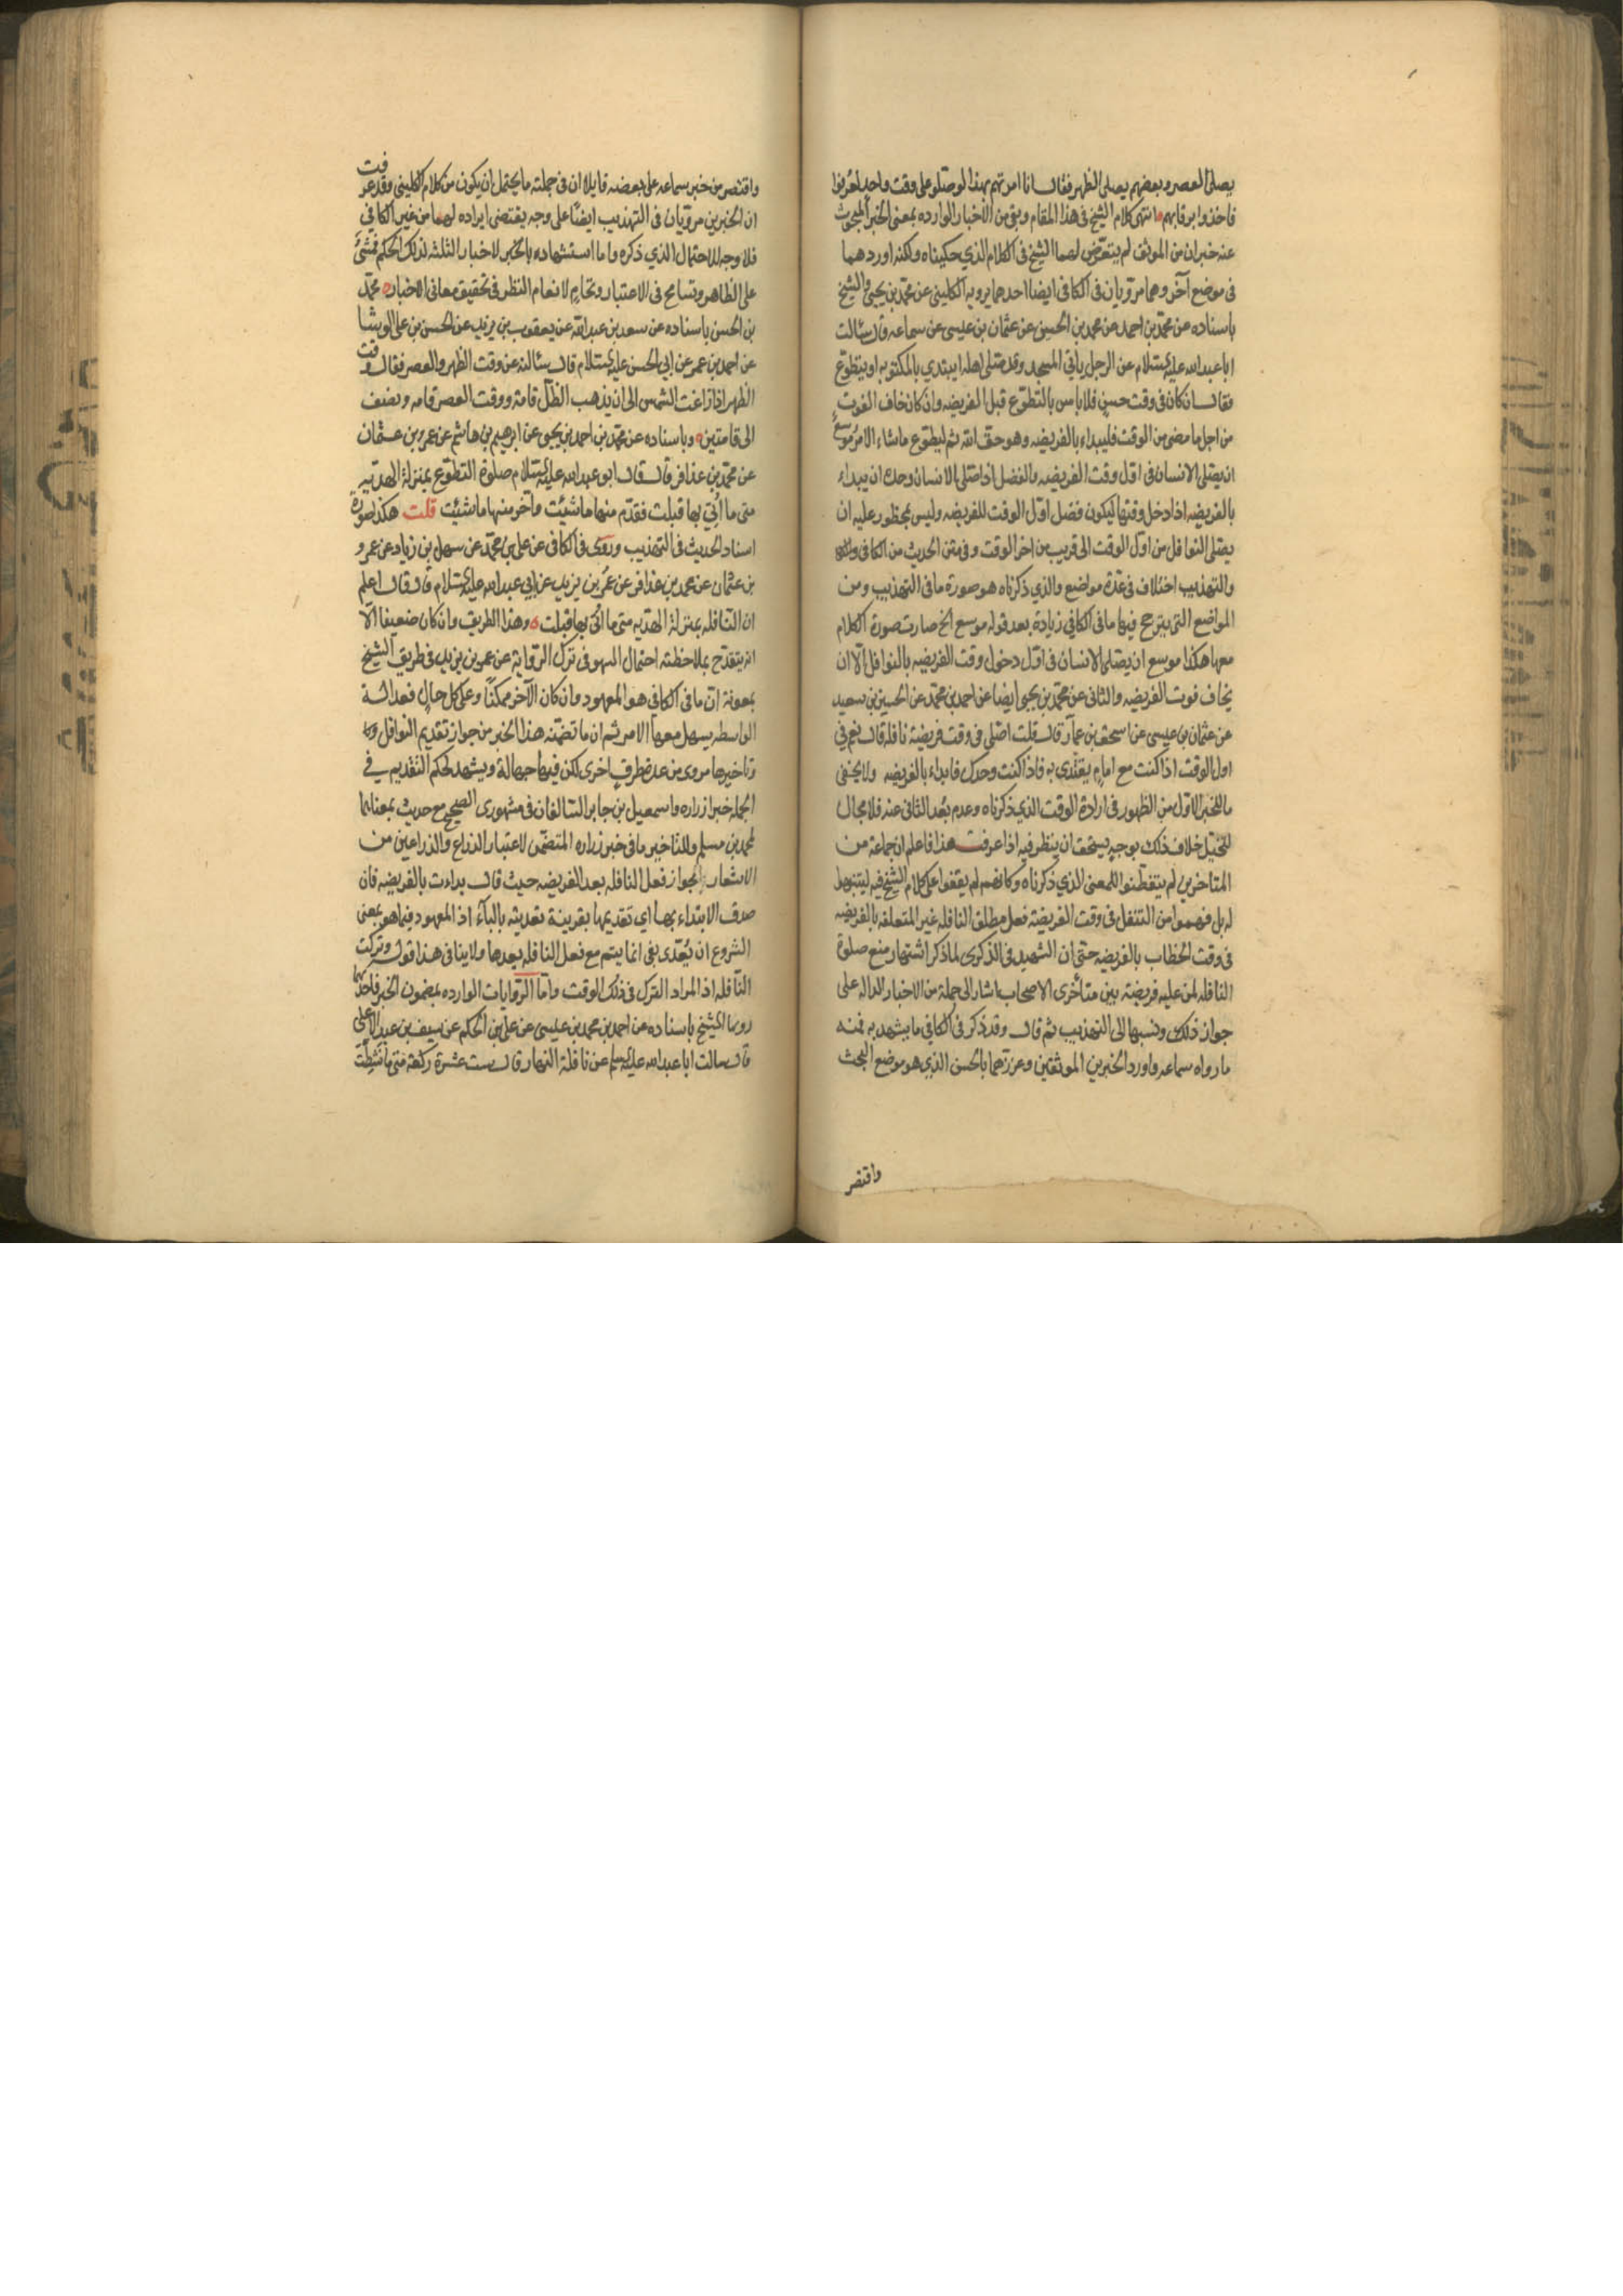 يصلى العصر وبعضهم يصلى الظهر فقال انا امرتهم بهذا لو صلوا على وقت واحد لعرفوا
فاخذوا برقابهم انتهى كلام الشيخ فى هذا المقام وبقى من الأخبار الوارده بمعنى الخبر المبحوث
عنه خبران من الموثق لم يتعرض لهما الشيخ فى الكلام الذي حكيناه ولكنه اوردهما
فى موضع آخر وهما مرويان فى الكافى ايضا احدهما يرويه الكلينى عن محمد بن يحيى والشيخ
باسناده عن محمد بن احمد عن محمد بن الحسين عن عثمان بن عيسى عن سماعه قال سئالت
ابا عبد الله عليه السلام عن الرجل ياتي المسجد وقد صلى اهله ايبتدي بالمكتوبه او يتطوع
فقال ان كان فى وقت حسن فلا باس بالتطوع قبل الفريضه وان كان خاف الفوت
من اجل ما مضى من الوقت فليبداء بالفريضه وهو حق الله ثم ليطوع ما شاء الامر موسع
ان يصلى الانسان فى اول وقت الفريضه والفضل اذا صلى الانسان وحده ان يبداء
بالفريضه اذا دخل وقتها ليكون فضل اول الوقت للفريضه وليس بمحظور عليه ان
يصلى النوافل من اول الوقت الى قريب من اخر الوقت وفى متن الحديث من الكافى
والتهذيب اختلاف فى عدة مواضع والذي ذكرناه هو صورة ما فى التهذيب ومن
المواضع التى يترجح فيها ما فى الكافي زيادة بعد قوله موسع الخ صارت صورة الكلام
معها هكذا موسع ان يصلى الانسان فى اول دخول وقت الفريضه بالنوافل الا ان
يخاف فوت الفريضه والثانى عن محمد بن يحيى ايضا عن احمد بن محمد عن الحسين بن سعيد
عن عثمان بن عيسى عن اسحق بن عمار قال قلت اصلى فى وقت فريضة نافله قال نعم فى
اول الوقت اذا كنت مع امام يقتدي به فاذا كنت وحدك فابداء بالفريضه ولا يخفى
ما للخبر الاول من الظهور فى ارادة الوقت الذي ذكرناه وعدم بعد الثانى عنه فلا مجال
لتخيل خلاف ذلك بوجه يستحق ان ينظر فيه اذا عرفت هذا فاعلم ان جماعة من
المتاخرين لم يتفطنوا للمعنى الذي ذكرناه وكانهم لم يقفوا على كلام الشيخ فيه ليتنبهوا
له بل فهموا من التنفل فى وقت الفريضة فعل مطلق النافله غير المتعلقه بالفريضه
فى وقت الخطاب بالفريضه حتى ان الشهيد فى الذكرى لما ذكر اشتهار منع صلوة
النافله لمن عليه فريضته بين متأخرى الاصحاب اشار الى جملة من الاخبار الداله على
جواز ذلك ونسبها الى التهذيب ثم قال وقد ذكر فى الكافي ما يشهد به فمنه
ما رواه سماعه واورد الخبرين الموثقين وعززهما بالحسن الذي هو موضع البحث
واقتصر
واقتصر من خبر سماعه على بعضه قايلا ان فى جملته ما يحتمل ان يكون من كلام الكليني وقد عرفت
ان الخبرين مرويان فى التهذيب ايضا على وجه يقتضى ايراده لهما من غير الكافي
فلا وجه للاحتمال الذي ذكره واما استشهاده بالخبر لاخبار الثلثه لذلك الحكم فمشى
على الظاهر وتسامح فى الاعتبار وتحام لانعام النظر فى تحقيق معانى الاخبار محمد
بن الحسن باسناده عن سعد بن عبد الله عن يعقوب بن يزيد عن الحسن بن على الوشا
عن احمد بن عمر عن ابي الحسن عليه السلام قال سئالته عن وقت الظهر والعصر فقال وقت
الظهر اذا زاغت الشمس الى ان يذهب الظل قامة ووقت العصر قامه ونصف
الى قامتين وباسناده عن محمد بن احمد بن يحيى عن ابرهيم بن هاشم عن عمرو بن عثمان
عن محمد بن عذافر قال قال ابو عبد الله عليه السلام صلوة التطوع بمنزلة الهديه
متى ما اتي بها قبلت فقدم منها ما شئيت وآخر منها ما شئيت قلت هكذا صورة
اسناد الحديث فى التهذيب وروى فى الكافى عن على بن محمد عن سهل بن زياد عن عمرو
بن عثمان عن محمد بن عذافر عن عمر بن يزيد عن ابي عبد الله عليه السلام قال قال اعلم
ان النافله بمنزلة الهديه متى ما اتي بها قبلت وهذا الطريق وان كان ضعيفا الا
انه يتقدح بملاحظته احتمال السهو فى ترك الرواية عن عمر بن يزيد فى طريق الشيخ
بمعونة ان ما فى الكافي هو المعهود وان كان الآخر ممكنا وعلى كل حال فعدالة
الواسطه يسهل معها الامر ثم ان ما تضمنه هذا الخبر من جواز تقديم النوافل
وتاخيرها مروى من عدة طرق اخرى لكن فيها جهالة ويشهد لحكم التقديم في
الجمله خبرا زراره واسمعيل بن جابر السالفان فى مشهورى الصحيح مع حديث بمعناهما
لمحمد بن مسلم وللتاخير ما فى خبر زراره المتضمن لاعتبار الذراع والذراعين من
الاشعار بجواز فعل النافله بعد الفريضه حيث قال بداءت بالفريضه فان
صدق الابتداء بها اي تقديمها بقرينة تعديته بالبآء اذ المعهود فيما هو بمعنى
الشروع ان يعدى بفى انما يتم مع فعل النافله بعدها ولا ينافى هذا قوله وتركت
النافله اذ المراد الترك فى ذلك الوقت واما الروايات الوارده بمضمون الخبر فاحدها
رويها الشيخ باسناده عن احمد بن محمد بن عيسى عن على بن الحكم عن سيف بن عبد الاعلى
قال سالت ابا عبد الله عليه السلم عن نافلة النهار قال ست عشرة ركعة متى ما نشطت